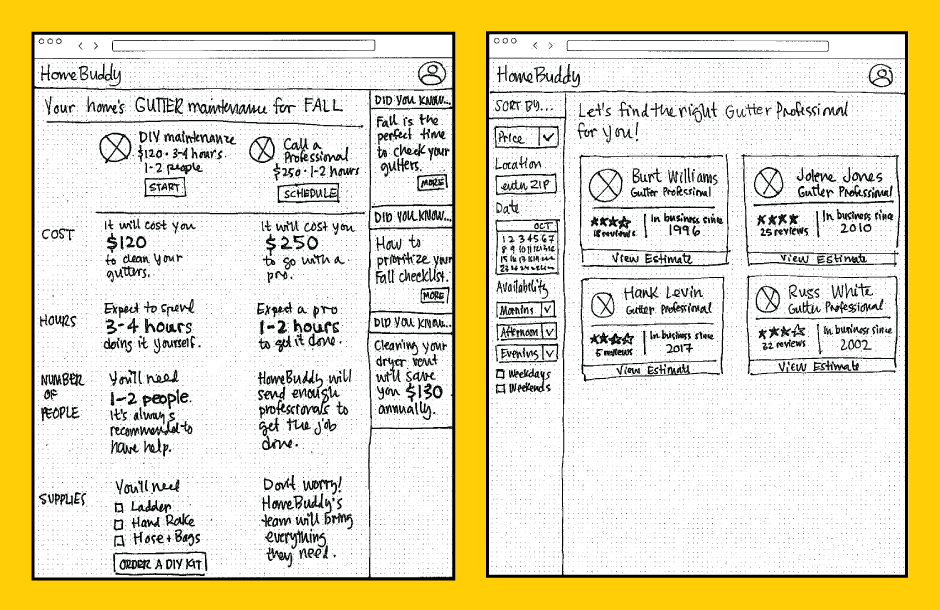 HomeBuddy
Your home's GUTTER maintenance for FALL
DIY maintenance
$120 · 3-4 hours.
1-2 people
START
Call a
Professional
$250 · 1-2 hours
SCHEDULE
COST
It will cost you
$120
to clean your
gutters.
It will cost you
$250
to go with a
pro.
HOURS
Expect to spend
3-4 hours
doing it yourself.
Expect a pro
1-2 hours
to get it done.
NUMBER
OF
PEOPLE
You'll need
1-2 people.
It's always
recommended to
have help.
HomeBuddy will
send enough
professionals to
get the job
done.
SUPPLIES
You'll need
Ladder
Hand Rake
Hose + Bags
ORDER A DIY KIT
Don't worry!
HomeBuddy's
team will bring
everything
they need.
DID YOU KNOW...
Fall is the
perfect time
to check your
gutters.
MORE
DID YOU KNOW...
How to
prioritize your
Fall checklist.
MORE
DID YOU KNOW...
Cleaning your
dryer vent
will save
you $130
annually.
HomeBuddy
SORT BY...
Price
Location
ZIP
Date
OCT
1 2 3 4 5 6 7
Availability
Morning
Afternoon
Evening
Weekdays
Weekends
Let's find the right Gutter Professional
for you!
Burt Williams
Gutter Professional
18 reviews
In business since
1996
View Estimate
Jolene Jones
Gutter Professional
25 reviews
In business since
2010
View Estimate
Hank Levin
Gutter Professional
5 reviews
In business since
2017
View Estimate
Russ White
Gutter Professional
32 reviews
In business since
2002
View Estimate